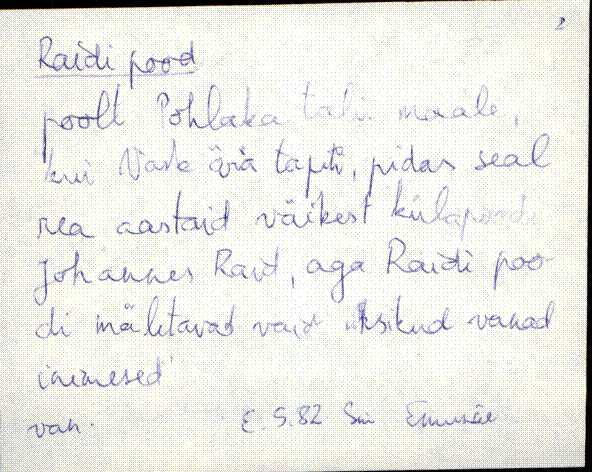 2
Raidi pood
poolt Pohlaka talu maale,
kui Vask ära tapeti, pidas seal
rea aastaid väikest külapoodi
Johannes Raid, aga Raidi poo-
di mäletavad vaid üksikud vanad
inimesed
van. E. S. 82 Sm